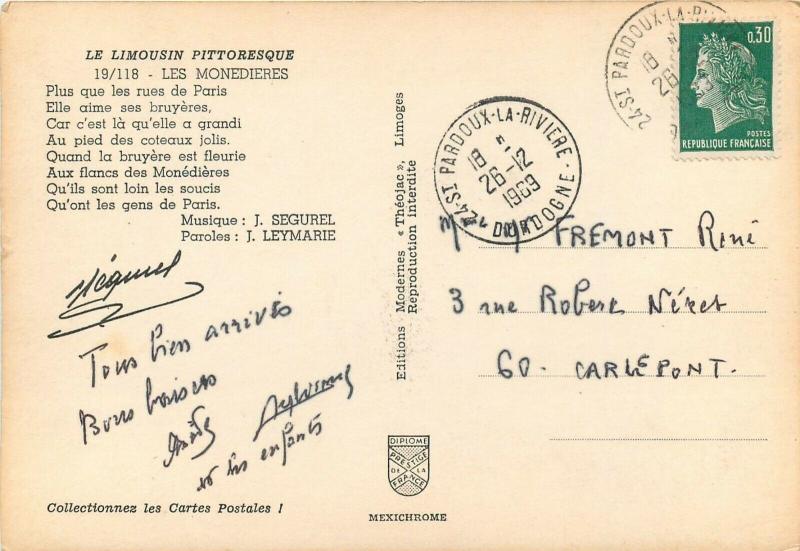 LE LIMOUSIN PITTORESQUE
19/118 - LES MONEDIERES
Plus que les rues de Paris
Elle aime ses bruyères,
Car c'est là qu'elle a grandi
Au pied des coteaux jolis.
Quand la bruyère est fleurie
Aux flancs des Monédières
Qu'ils sont loin les soucis
Qu'ont les gens de Paris.
Musique : J. SEGUREL
Paroles : J. LEYMARIE
Tous bien arrivés
Bons baisers
et les enfants
Collectionnez les Cartes Postales !
Editions Modernes « Théojac », Limoges
Reproduction interdite
DIPLOME
PRESTIGE
DE LA
FRANCE
MEXICHROME
24-ST PARDOUX-LA-RIVIERE
18 H
26-12
1969
DORDOGNE
24-ST PARDOUX-LA-RIVIERE
18
26
0,30
POSTES
REPUBLIQUE FRANÇAISE
FREMONT René
3 rue Robert Néret
60. CARLEPONT.